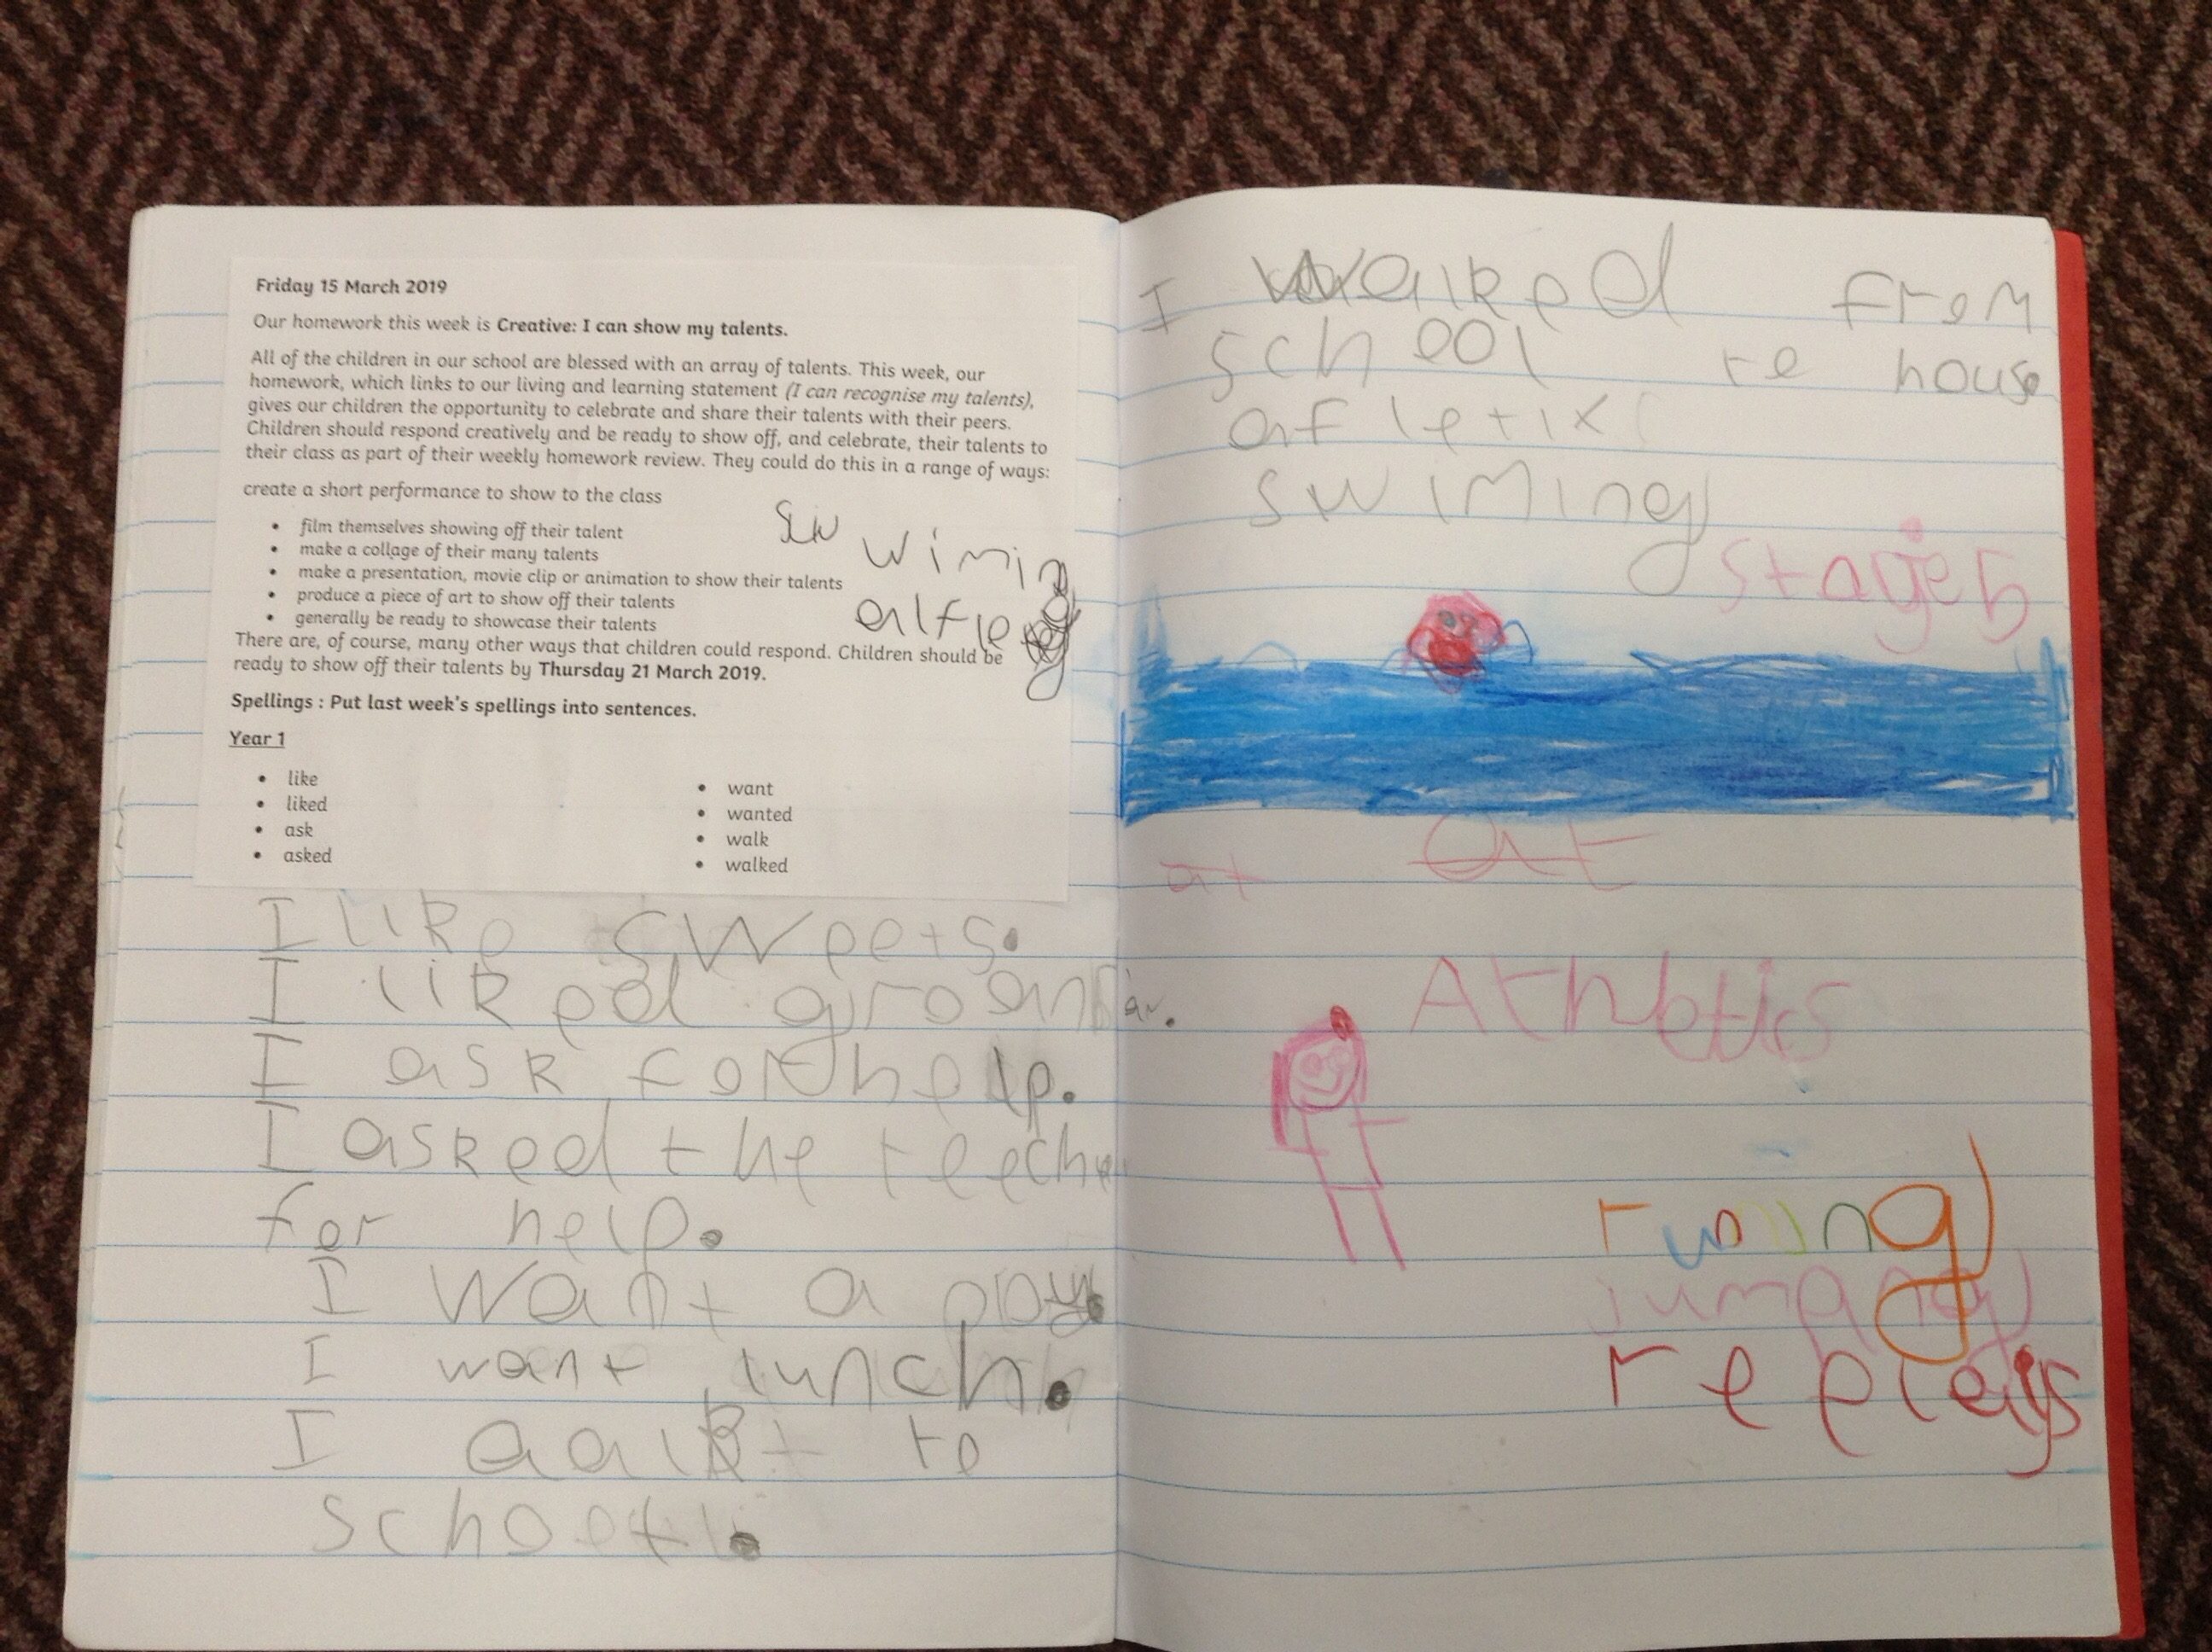 Friday 15 March 2019
Our homework this week is Creative: I can show my talents.
All of the children in our school are blessed with an array of talents. This week, our
homework, which links to our living and learning statement (I can recognise my talents),
gives our children the opportunity to celebrate and share their talents with their peers.
Children should respond creatively and be ready to show off, and celebrate, their talents to
their class as part of their weekly homework review. They could do this in a range of ways:
create a short performance to show to the class
• film themselves showing off their talent
• make a collage of their many talents
• make a presentation, movie clip or animation to show their talents
• produce a piece of art to show off their talents
• generally be ready to showcase their talents
There are, of course, many other ways that children could respond. Children should be
ready to show off their talents by Thursday 21 March 2019.
Spellings : Put last week's spellings into sentences.
Year 1
• like
• liked
• ask
• asked
• want
• wanted
• walk
• walked
I like sweets.
I liked
I ask for help.
I asked the
for help.
I want a
I want lunch.
I to
I walked from
school te house
afletix
swiming
stage 5
at
at
Athletics
runing
jumping